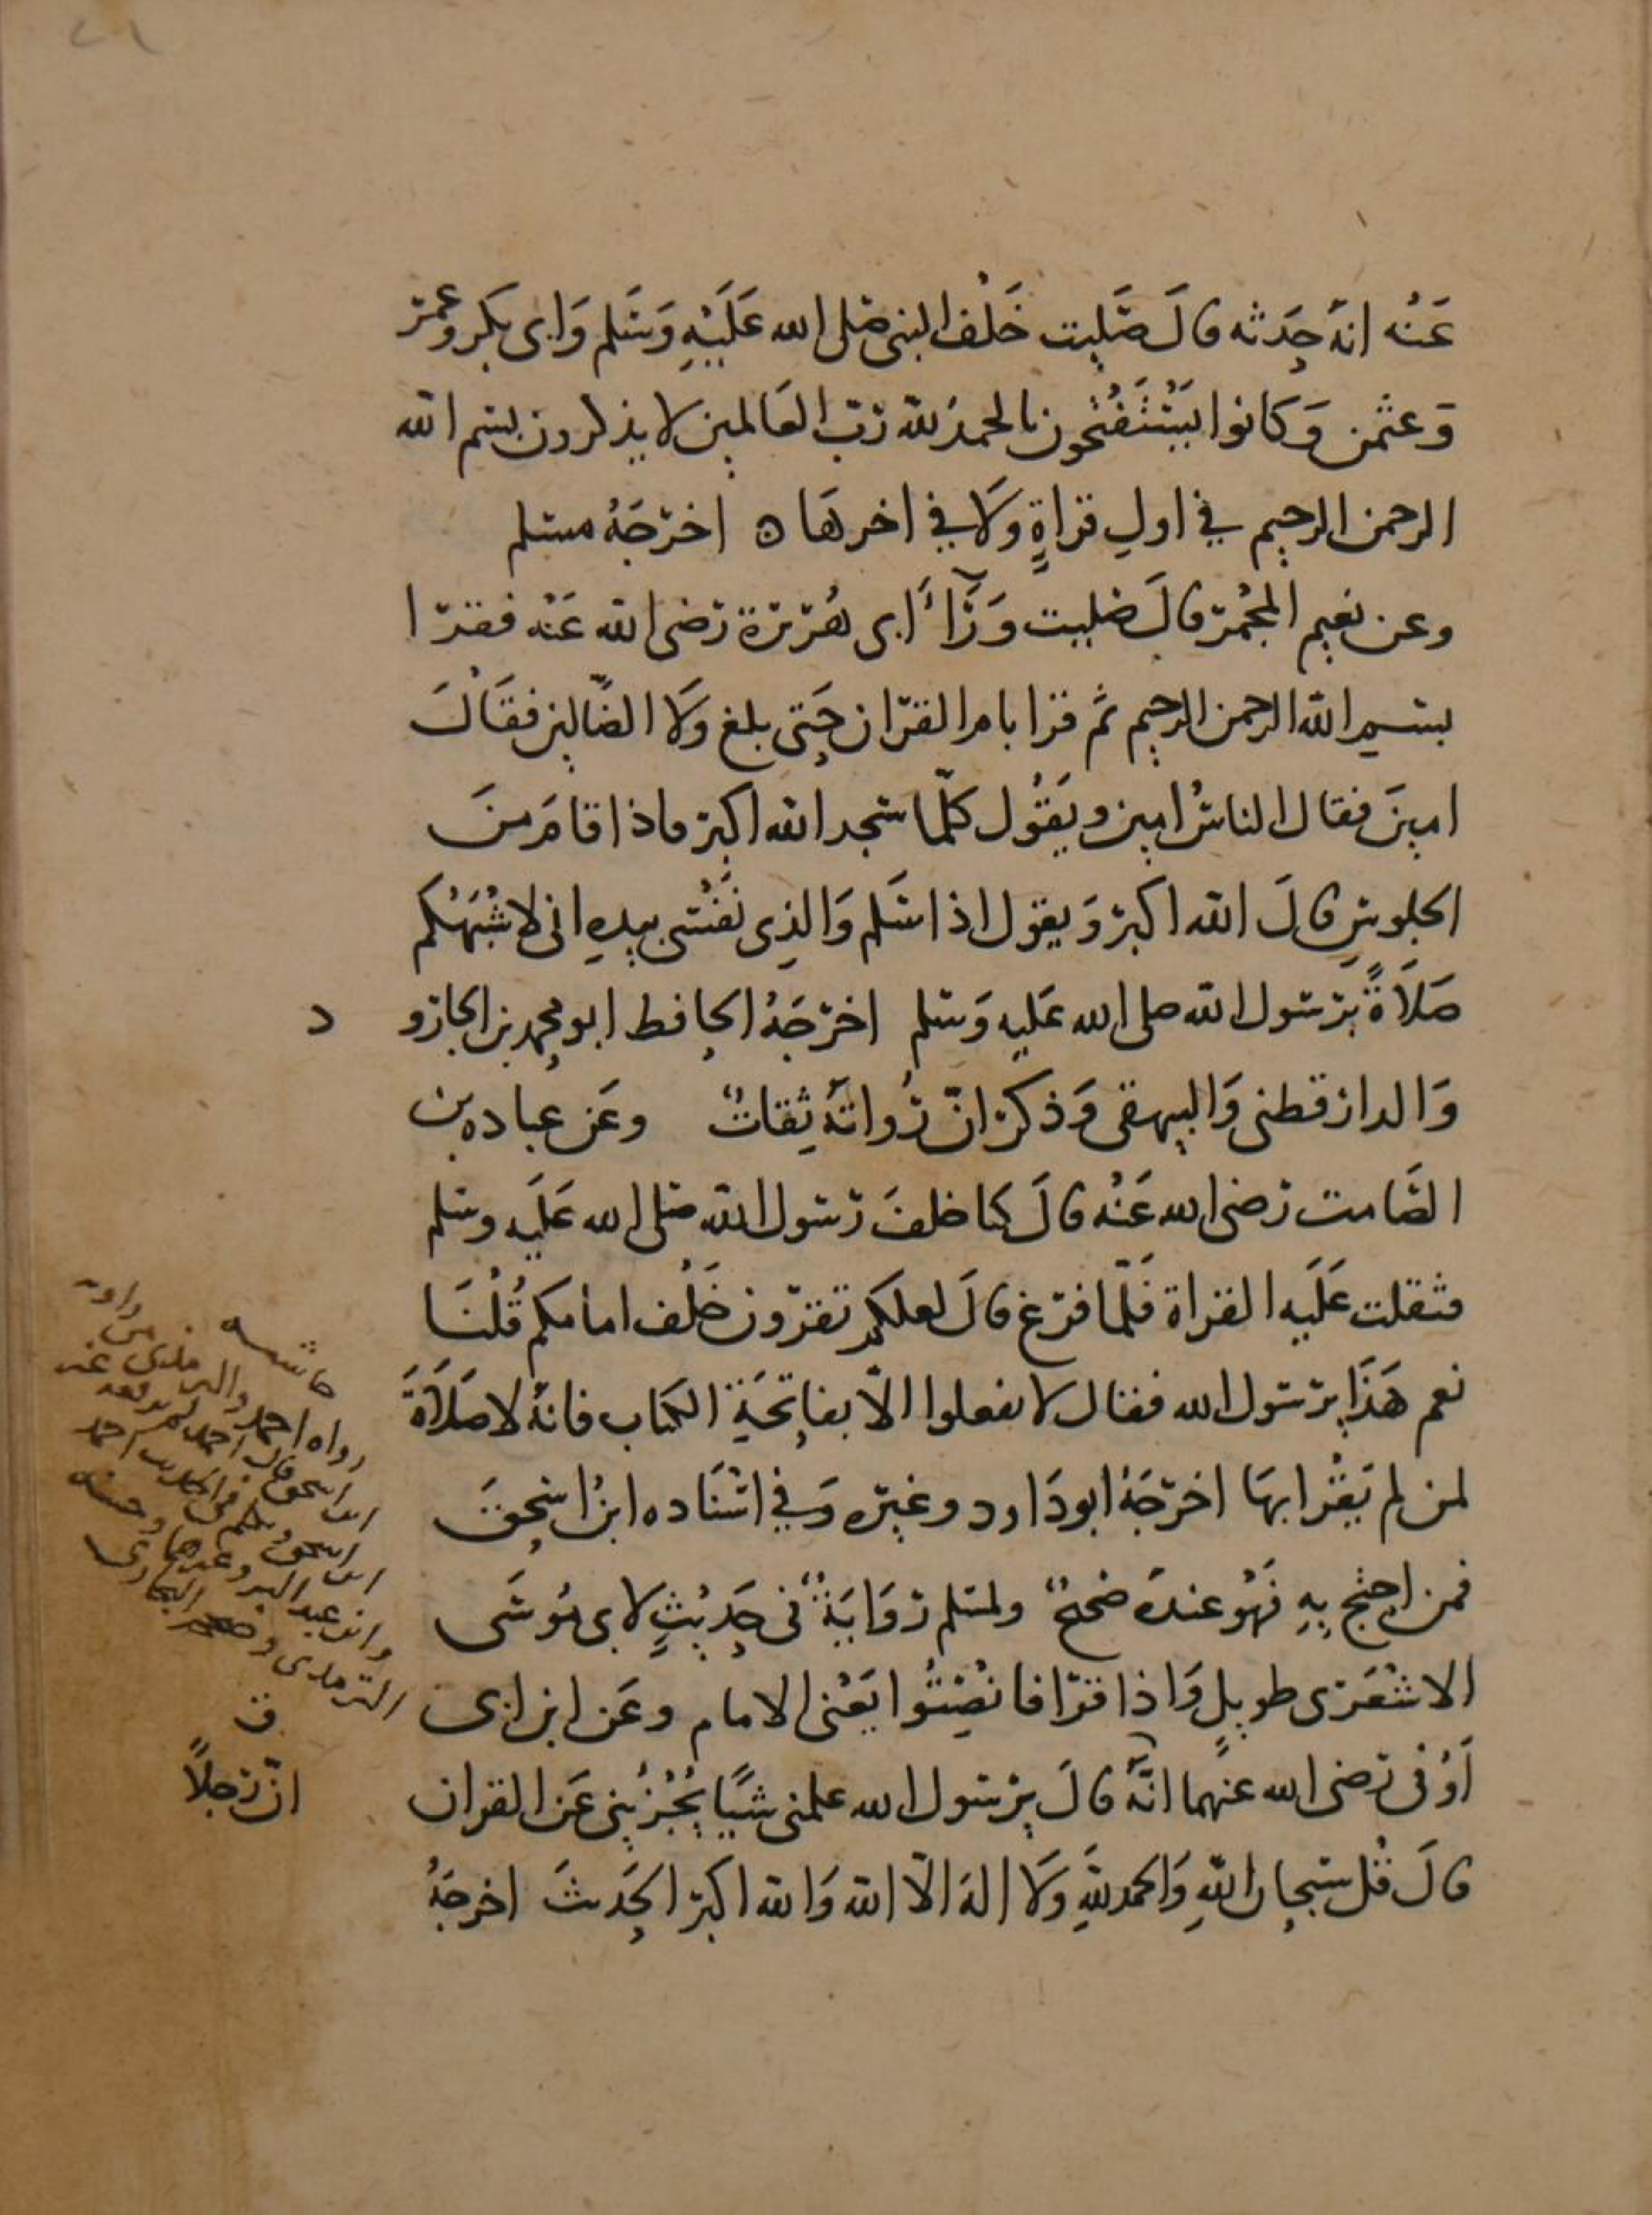 عَنْه انهُ حَدثه قالَ صَلَّيت خَلْفَ النبي صلى الله عَلَيْهِ وَسَلم وَابى بكر وعمر
وَعثمن وَكانوا يَسْتَفْتحُون بالحمدُ لله رَبّ العَالمين لا يذكرون بسم الله
الرحمن الرحيم في اولِ قراةٍ وَلا في اخرهَا ه اخرَجَهُ مسلم
وعن نعيم المجُمر قالَ صليت وَرَآءَ أبى هُريرة رَضى الله عَنْه فقرا
بسم الله الرحمن الرحيم ثم قرا بام القرّان حَتى بلغ وَلا الضّالين فقَالَ
امينَ فقال الناسُ امين ويَقُول كلّما سَجد الله اكبر واذا قامَ منَ
الجلوسِ قالَ الله اكبر وَيقول اذا سَلم وَالذِى نَفْسى بيدِهِ انى لاشْبَهُكم
صَلاَةً برَسول الله صلى الله عَليه وَسَلم اخرَجَهُ الحافظ ابو محمد بن الجارو
د
وَالدارقطنى وَالبيهقى وَذكر انّ رُواتهُ ثِقاتٌ وعَن عباده بن
الصَّامت رَضى الله عَنْه قالَ كنا خلفَ رَسول الله صَلى الله عَلَيه وسلم
فثقلت عَلَيه القراة فَلّما فرَغ قالَ لعلكم تقرؤون خَلْف امامكم قُلْنَا
نعم هَذَا يرَسُول الله فقال لا تفعلوا الاّ بفاتِحَةِ الكتاب فانهُ لا صَلاَةَ
لمن لم يَقْرا بهَا اخرَجَهُ ابو دَاود وغيره وَفي اسْنَاده ابنُ اسحقَ
فمن احتج بِهِ فَهُو عندَهُ صَحيحٌ ولمسلم رِوَايَةٌ في حَدِيْثٍ لابى مُوسَى
الاشْعَرى طويلٍ وَاذا قرا فانْصِتُوا يَعْنى الامام وعَن ابن ابى
أَوْفى رَضى الله عنهما انَّهُ قالَ يرَسُول الله علمنى شيًا يُجْزِئنِى عَن القران
قالَ قُل سبحان اللهِ وَالحمد للهِ وَلا الهَ الاّ الله وَالله اكبر الحَديثَ اخرجَهُ
حاشيه
رواه احمد والترمذى من رواية
ابن اسحق قال احمد لم يرفعه غير
ابن اسحق وتكلم في الحديث احمد
وابن عبد البر وغيرهما وحسنه
الترمذى وصححه البخارى
ق
انّ رَجلاً